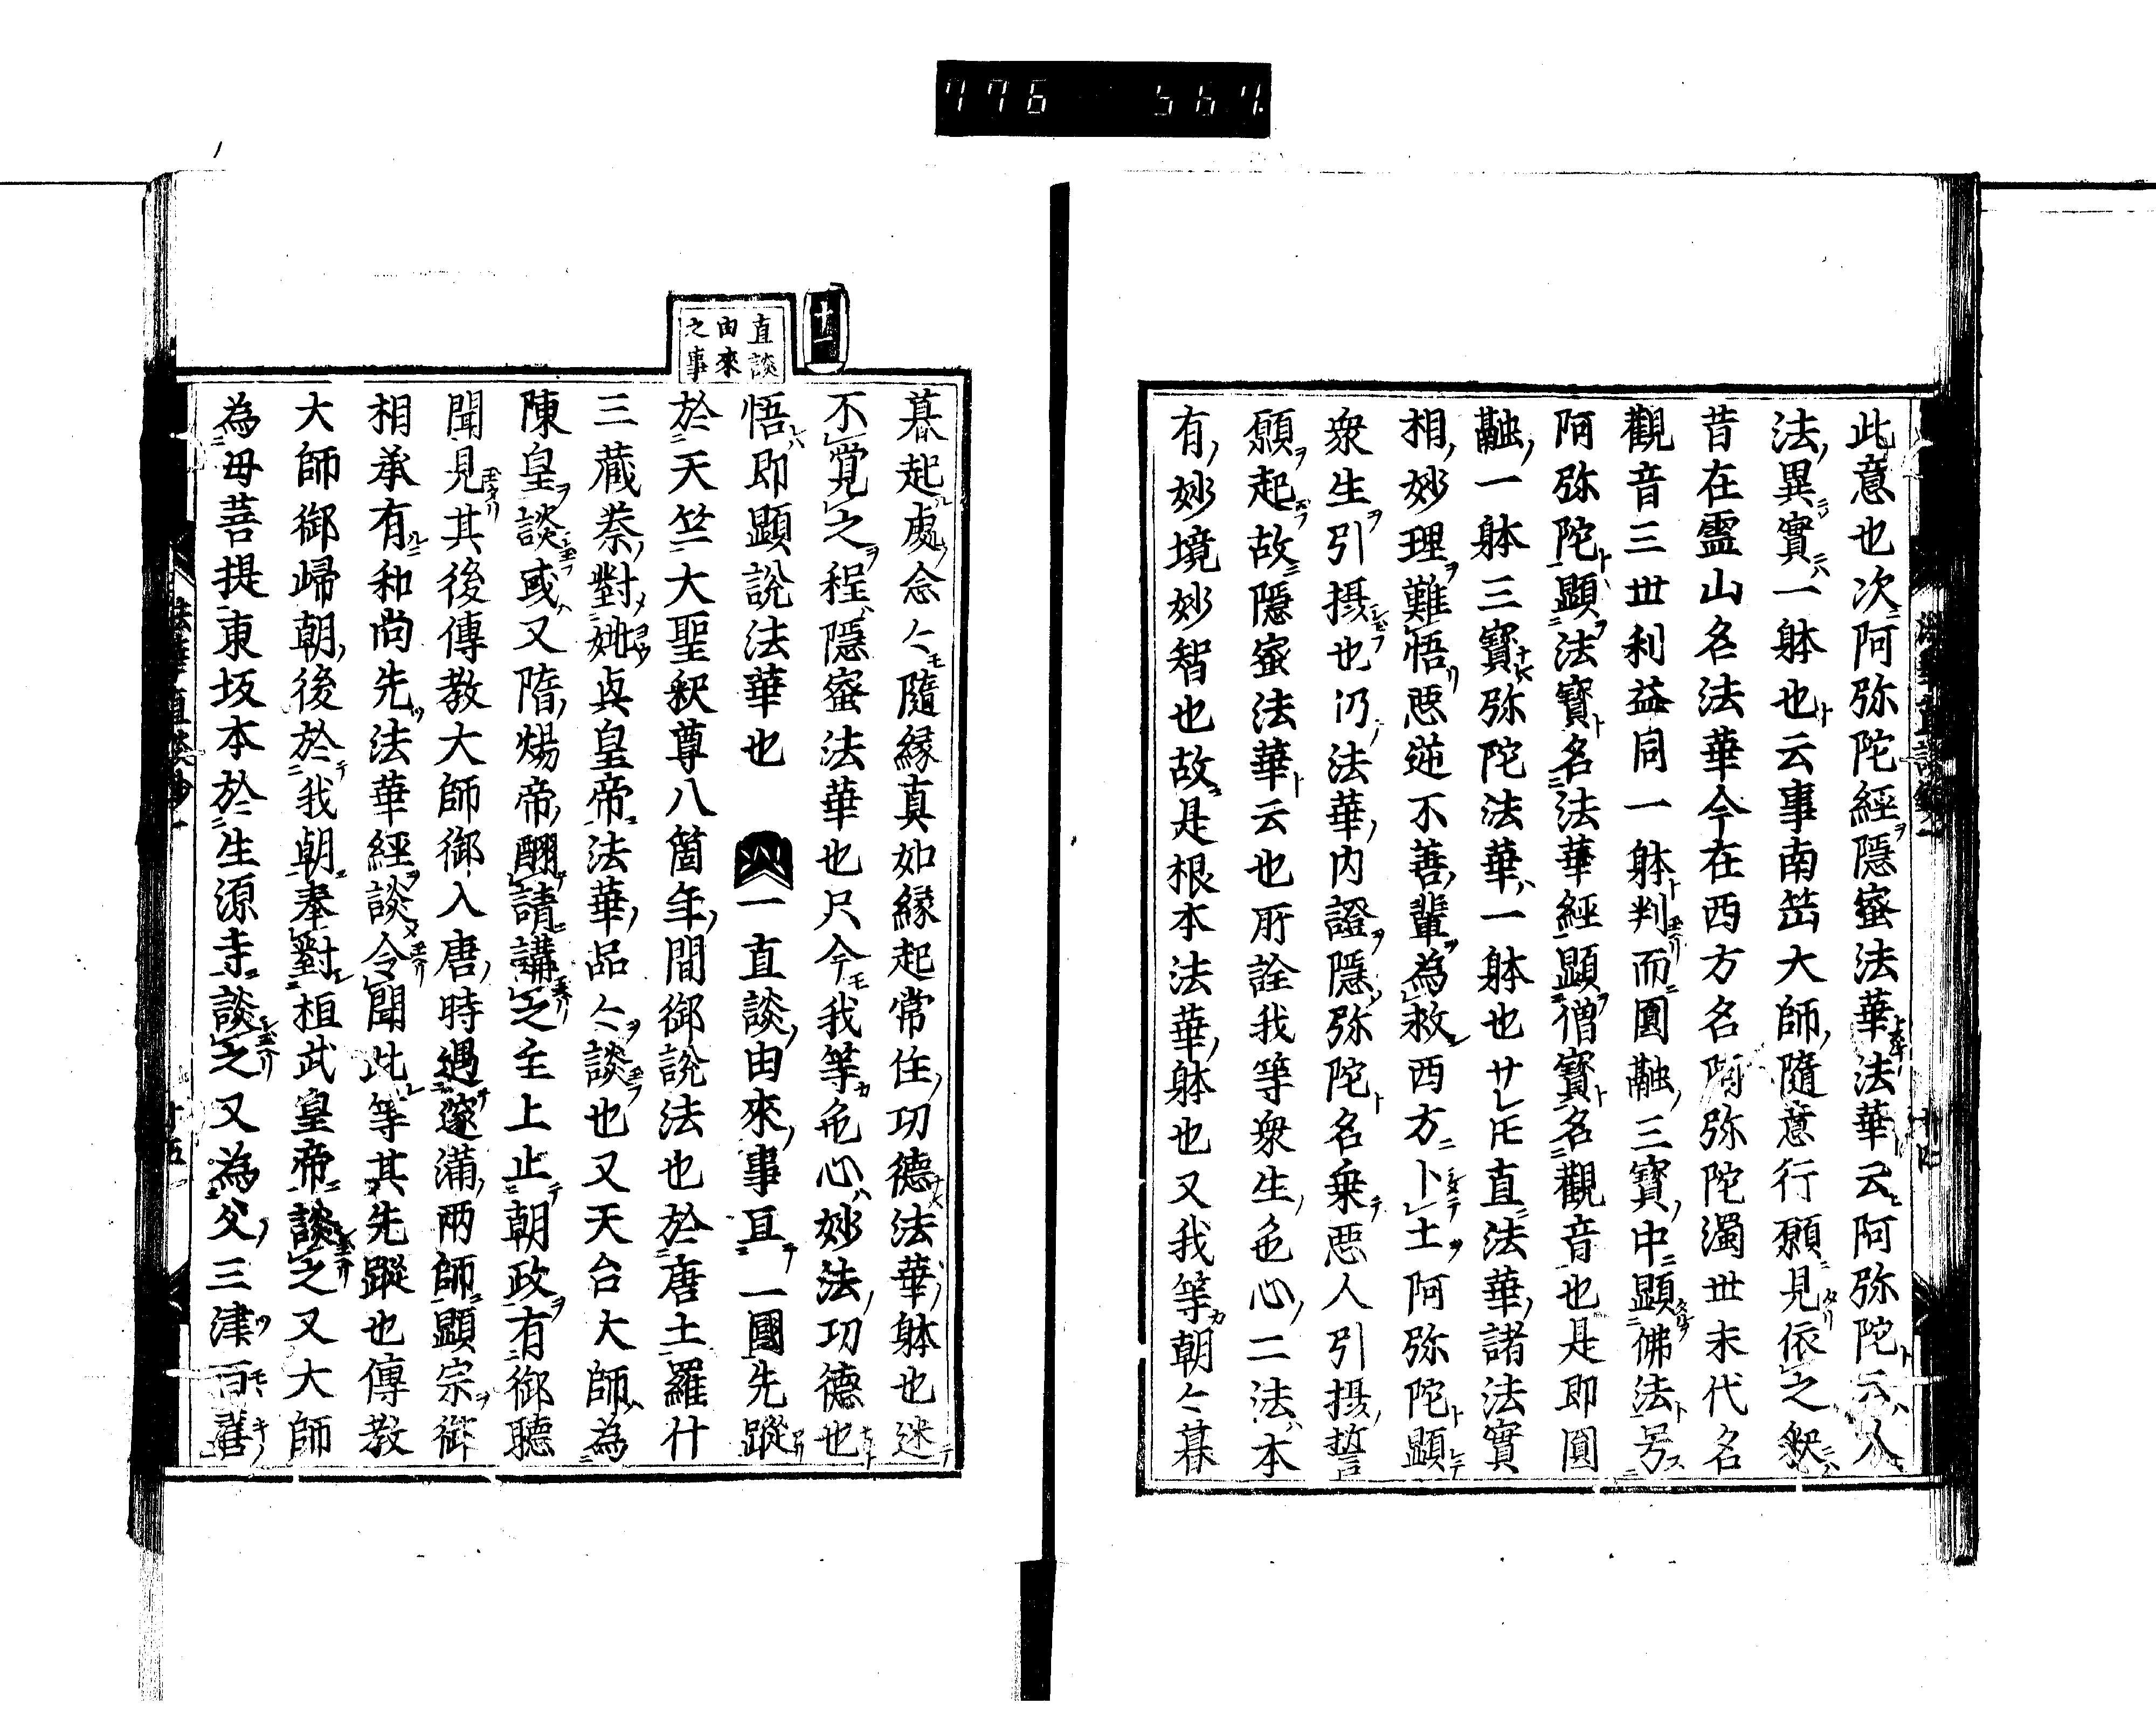 776 567
此意也次阿弥陀經隱蜜法華法華云阿弥陀云人
法異實一躰也云事南岳大師隨意行願見依之釈
昔在霊山名法華今在西方名阿弥陀濁世末代名
觀音三世利益同一躰判而圓融三寶中顯佛法号
阿弥陀顯法寶名法華經顯僧寶名觀音也是即圓
融一躰三寶弥陀法華一躰也サレ𪜈直法華諸法實
相妙理難悟悪逆不善輩為救西方卜土阿弥陀顯
衆生引摂也仍法華内證隱弥陀名乗悪人引摂誓
願起故隱蜜法華云也所詮我等衆生色心二法本
有妙境妙智也故是根本法華躰也又我等朝々暮
暮起處念々隨縁真如縁起常住功德法華躰也迷
不覚之程隱蜜法華也只今我等色心妙法功德也
悟即顯說法華也 一直談由來事且一國先蹤
於天竺大聖釈尊八箇年間御說法也於唐土羅什
三蔵奉對姚貞皇帝法華品々談也又天台大師為
陳皇談或又隋煬帝翻請講之主上止朝政有御聴
聞見其後傳教大師御入唐時遇邃滿兩師顯宗御
相承有和尚先法華經談令聞此等其先蹤也傳教
大師御帰朝後於我朝奉對桓武皇帝談之又大師
為母菩提東坂本於生源寺談之又為父三津百
十一
直談
由來
之事
法華直談鈔一